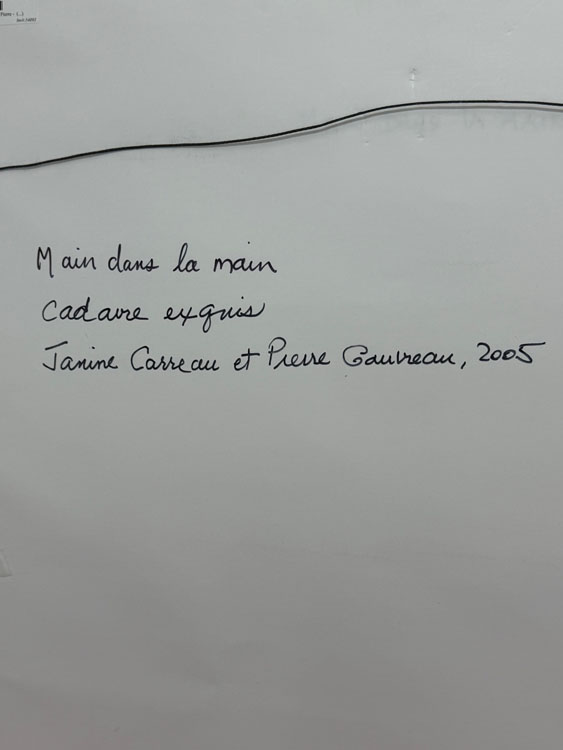 Main dans la main
Cadavre exquis
Janine Carreau et Pierre Gauvreau, 2005